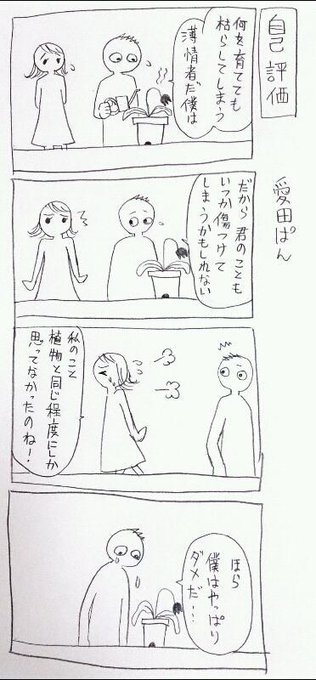 自己評価
愛田ぱん
何を育てても
枯らしてしまう
薄情者だ僕は
だから君のことも
いつか傷つけて
しまうかもしれない
私のこと
植物と同じ程度にしか
思ってなかったのね!
ほら
僕はやっぱり
ダメだ…